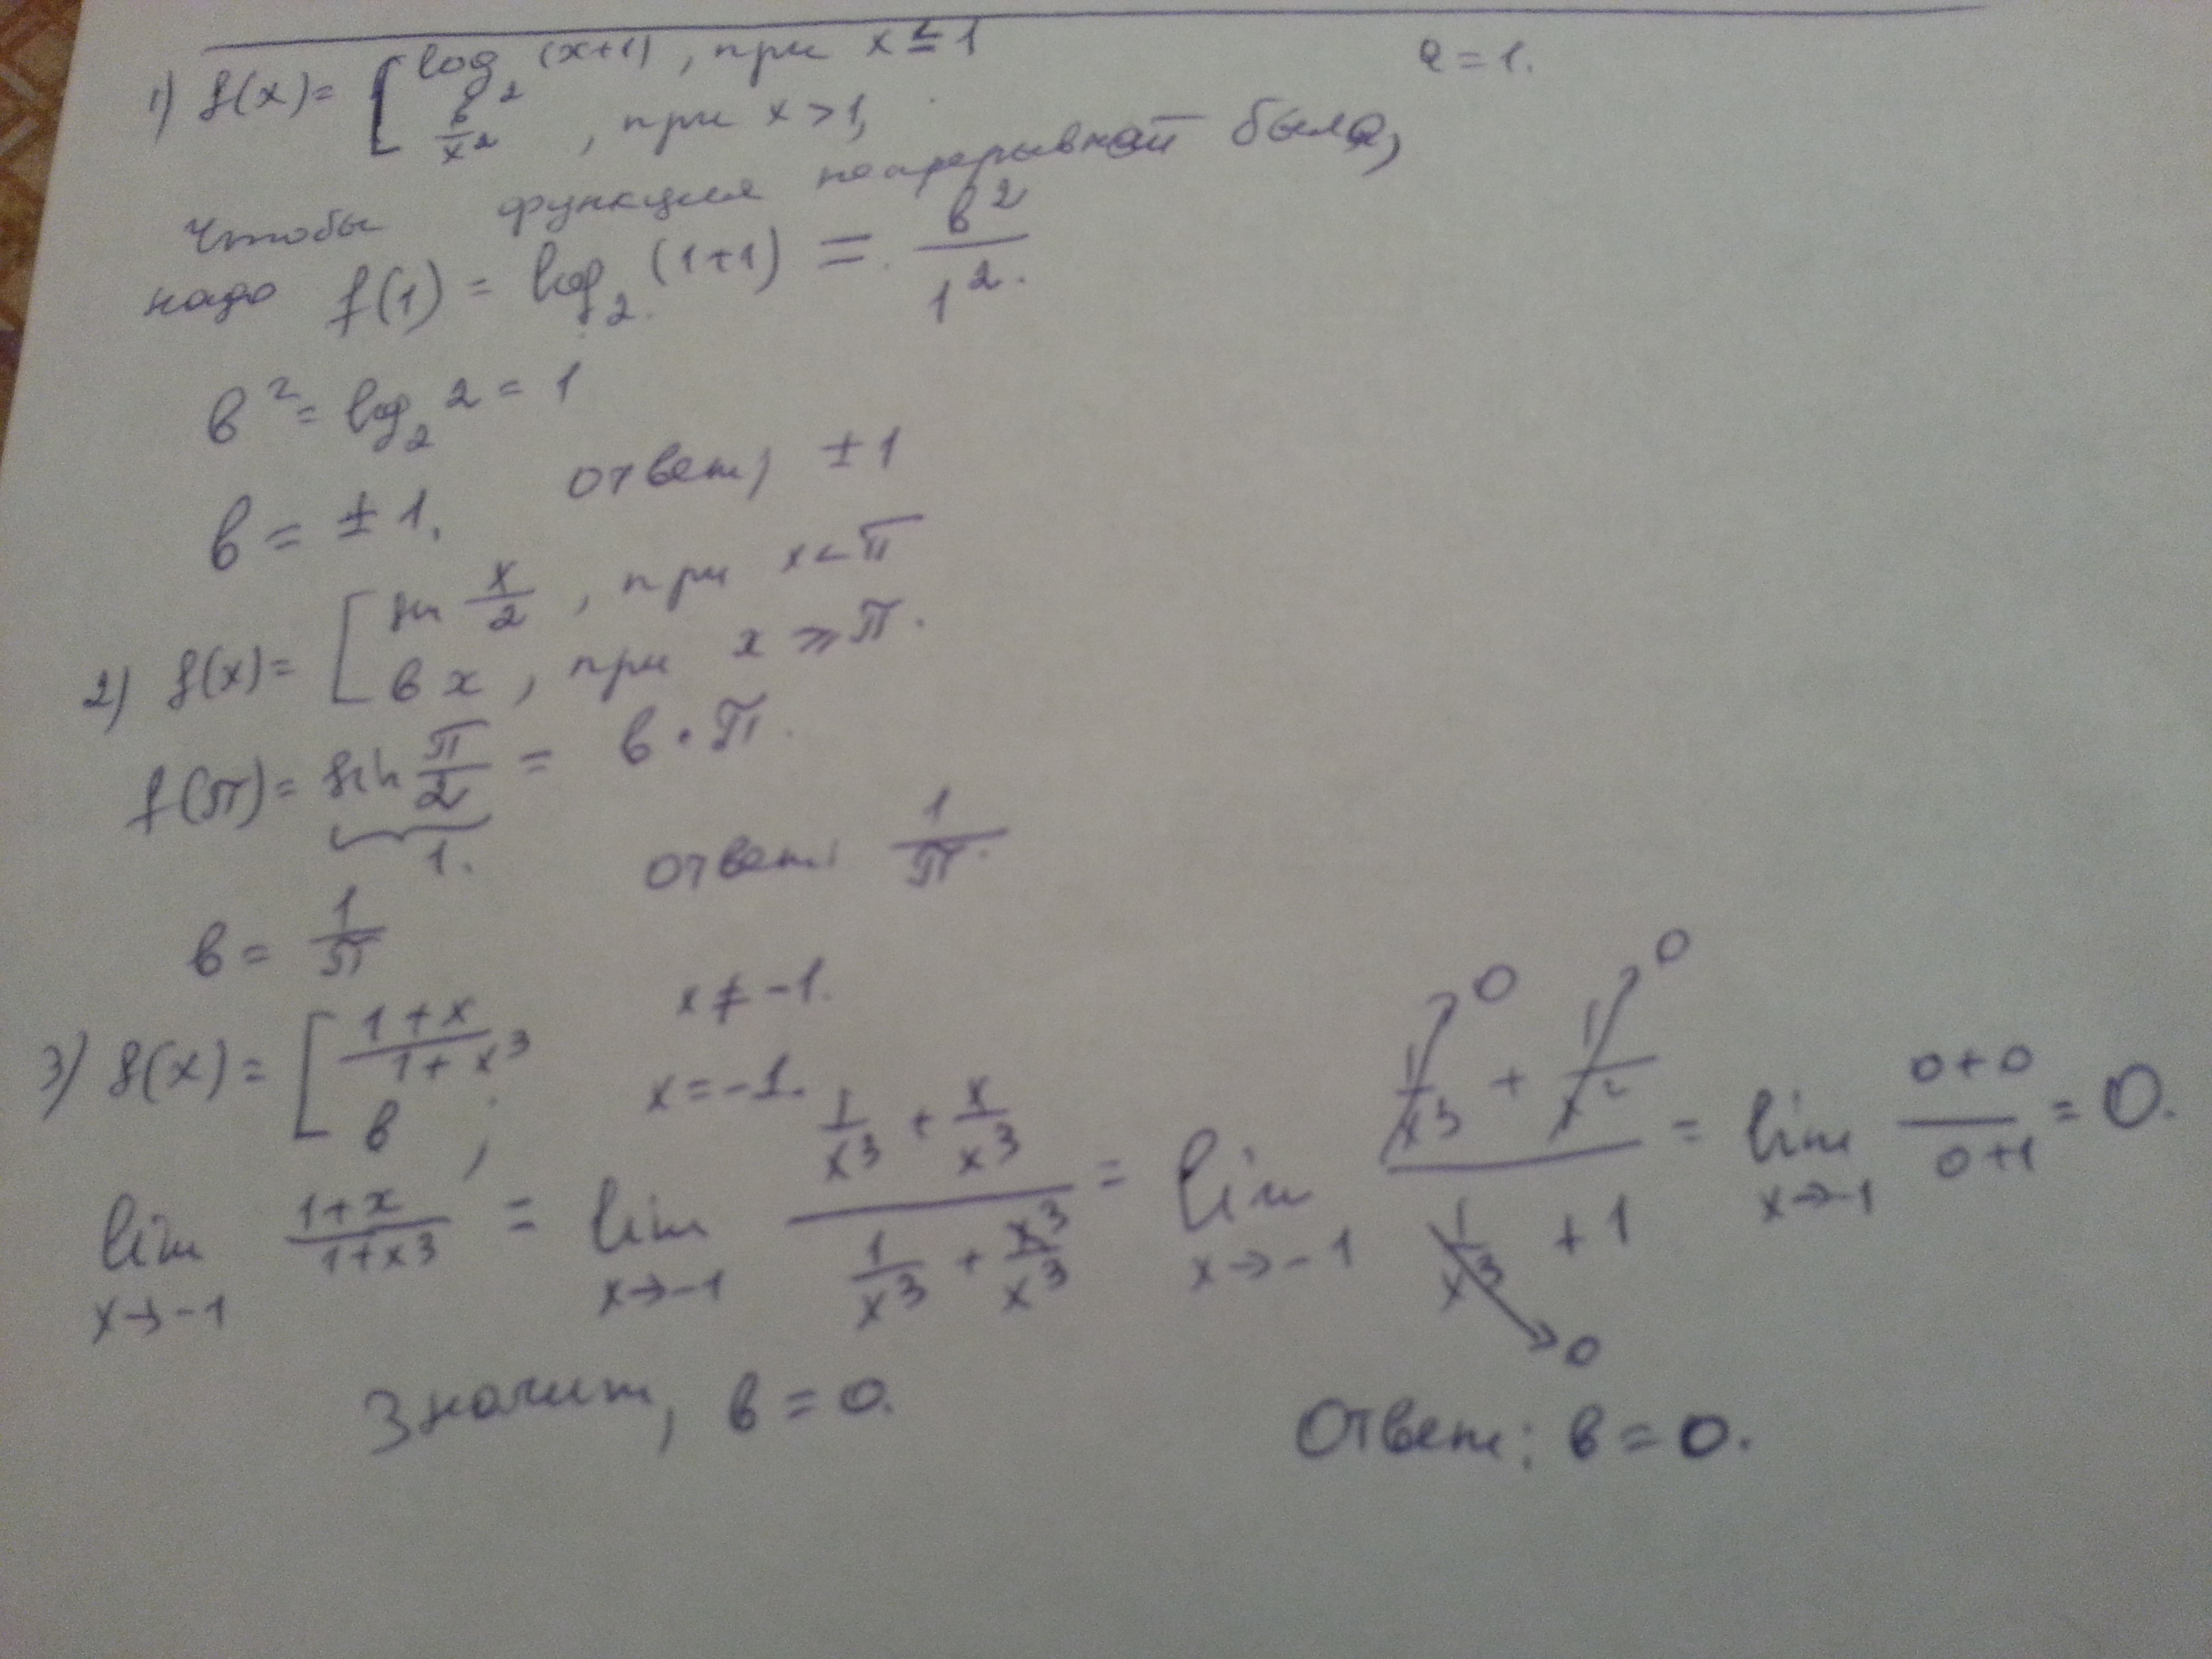 1) f(x) = [ log₂ (x+1), при x ≤ 1
в/x², при x > 1,
a = 1.
Чтобы функция непрерывной была,
надо f(1) = log₂ (1+1) = в²/1².
в² = log₂ 2 = 1
в = ± 1. ответ; ± 1
2) f(x) = [ sin x/2, при x < π
в x, при x ⩾ π.
f(π) = sin π/2 = в · π.
1.
в = 1/π ответ: 1/π.
3) f(x) = [ (1+x)/(1+x³) x ≠ -1.
в ; x = -1.
lim x→-1 (1+x)/(1+x³) = lim x→-1 (1/x³ + x/x³)/(1/x³ + x³/x³) = lim x→-1 (1/x³ →0 + 1/x² →0)/(1/x³ →0 + 1) = lim x→-1 (0+0)/(0+1) = 0.
Значит, в = 0. Ответ: в = 0.